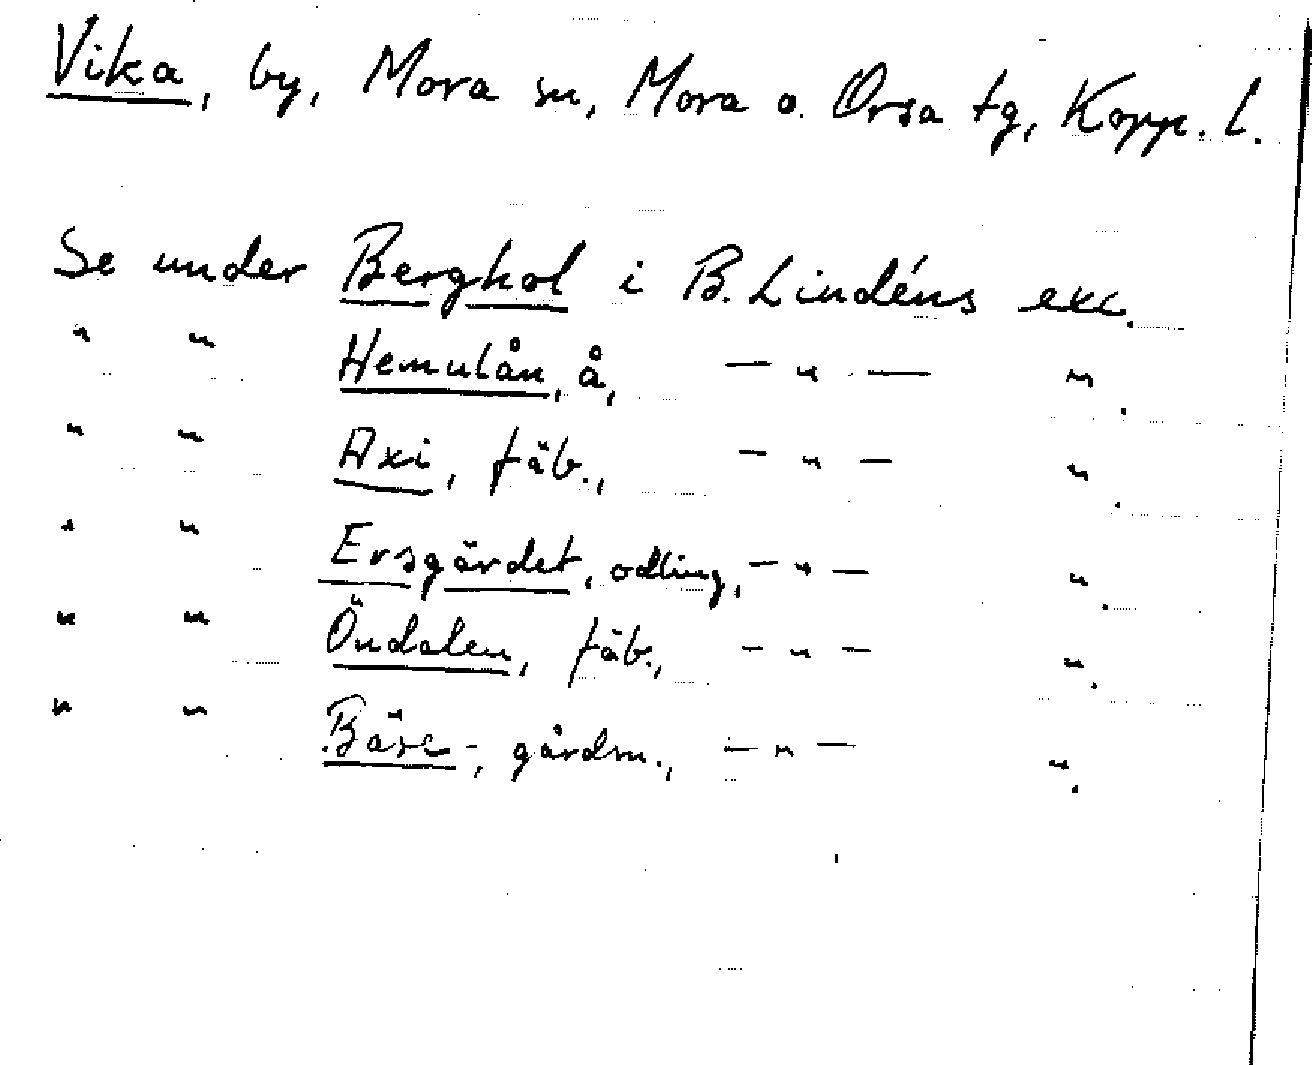 Vika, by, Mora sn, Mora o. Orsa tg, Kopp. l.
Se under Bergkol i B. Lindéns exc.
" " Hemulån, å, — " — ".
" " Axi, fäb., — " — ".
" " Ersgärdet, odling, — " — ".
" " Öndalen, fäb., — " — ".
" " Bäsc-, gårdsn., — " — ".